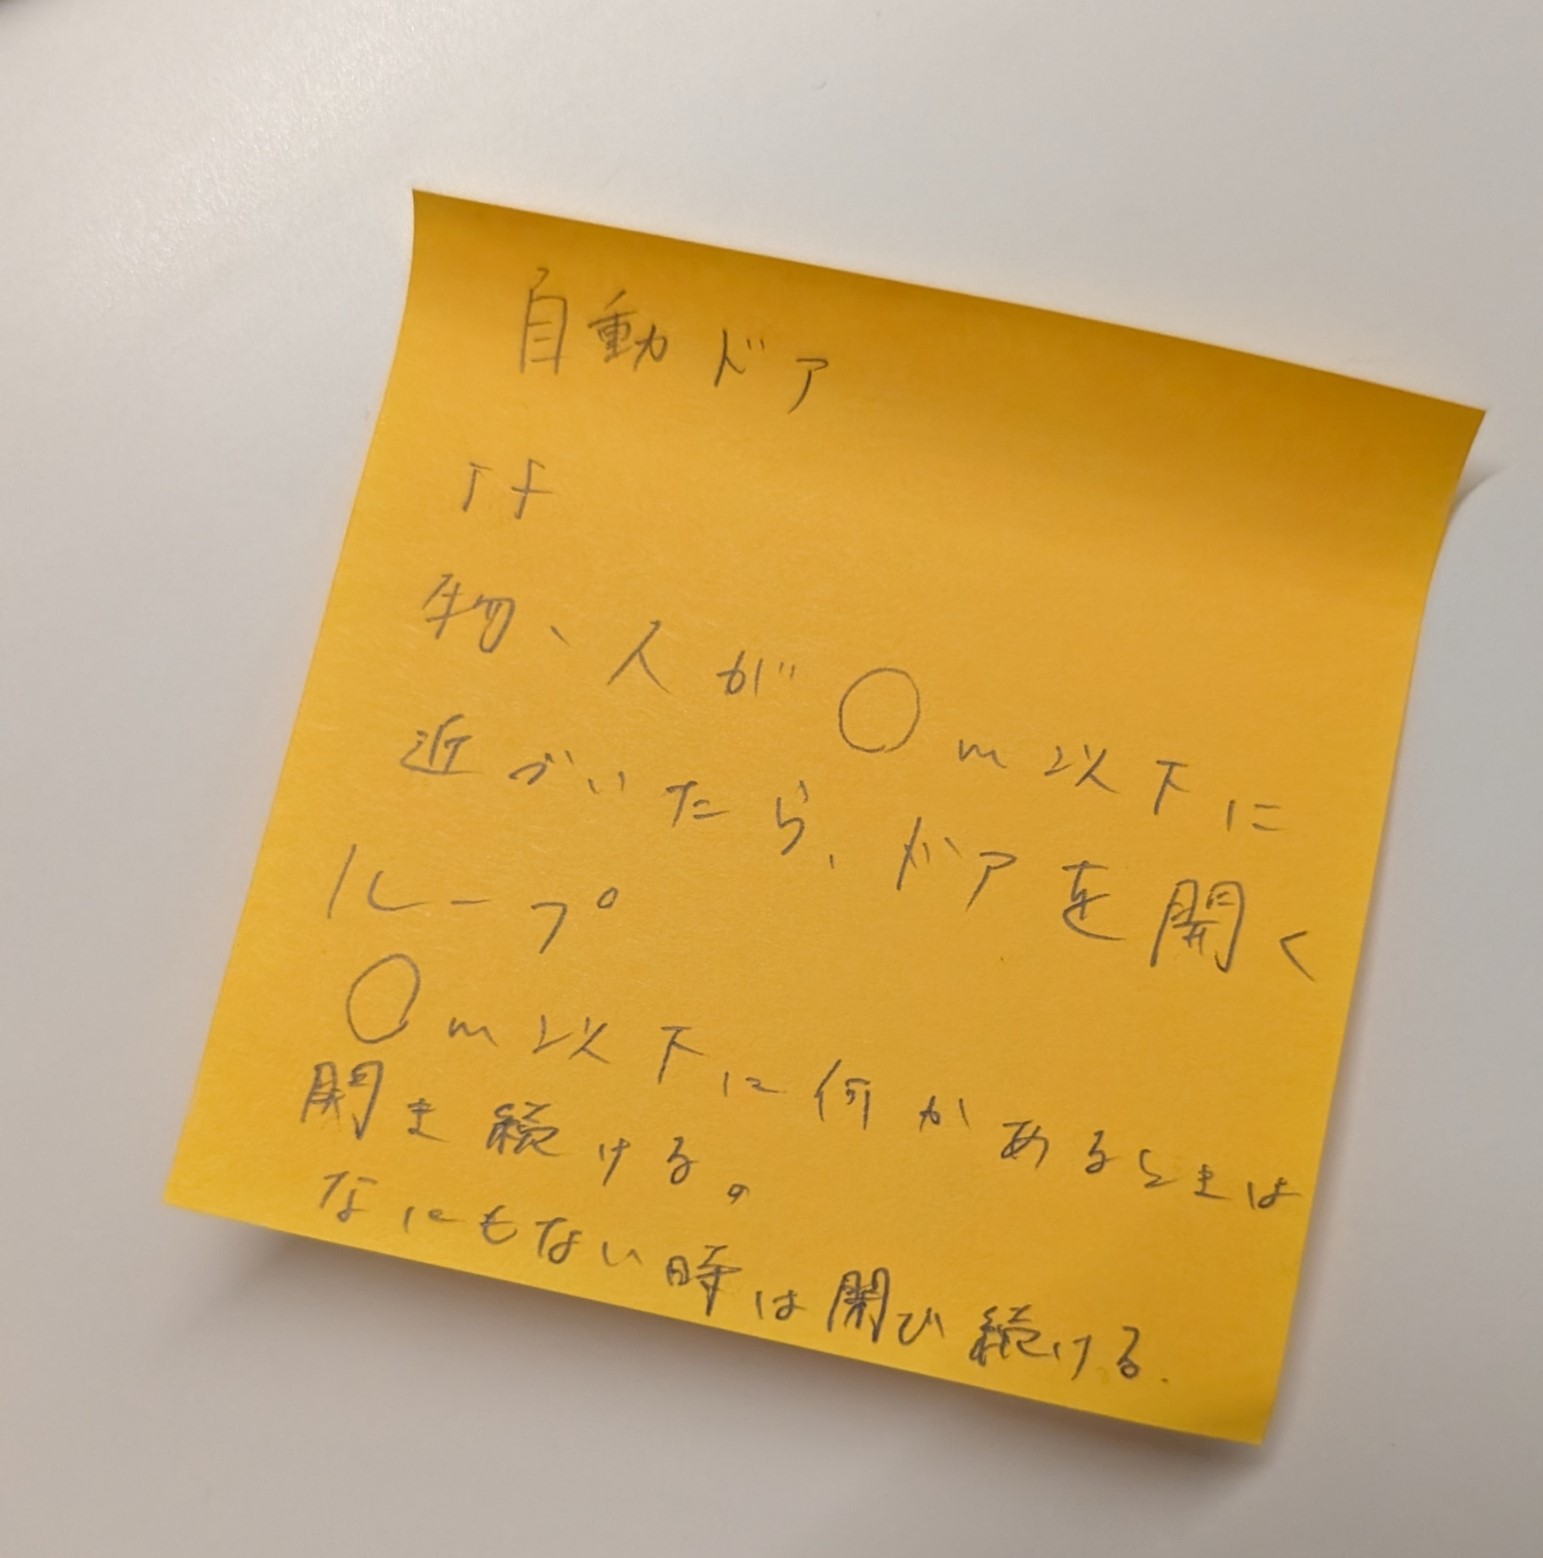 自動ドア
if
物、人が○m以下に
近づいたら、ドアを開く
ループ
○m以下に何かあるときは
開き続ける。
なにもない時は閉び続ける.